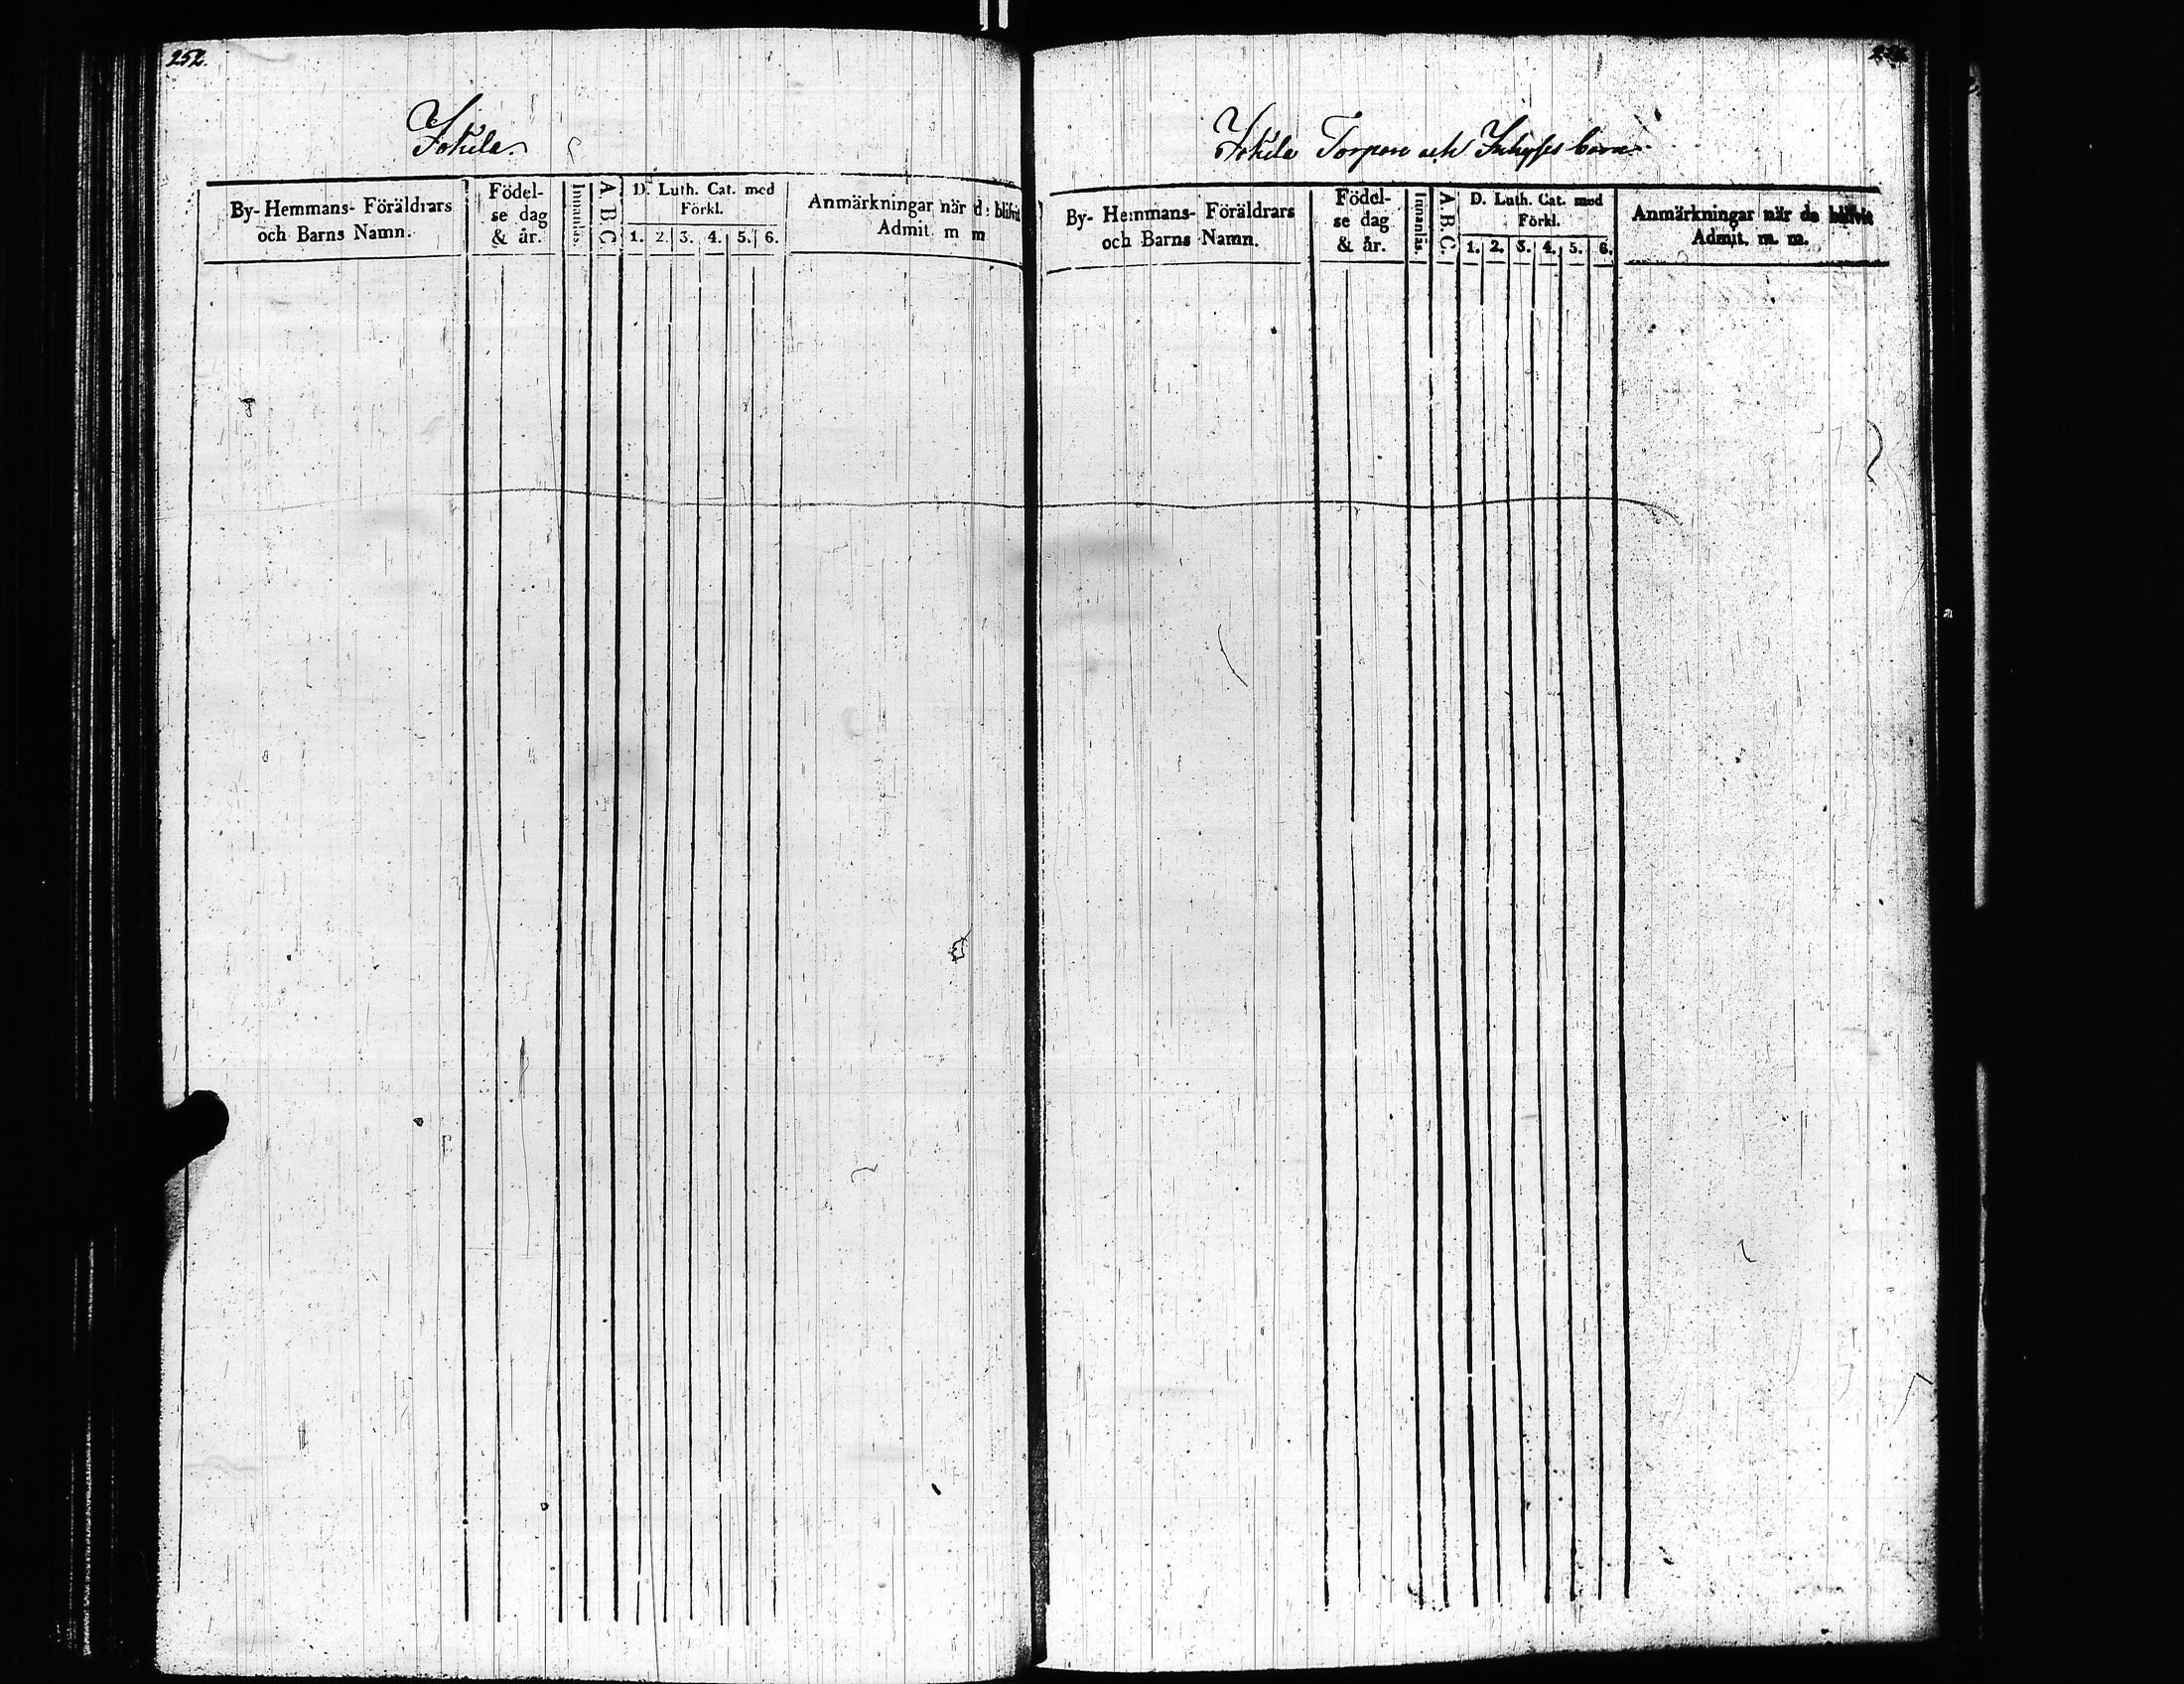 252.
Jokila
By- Hemmans- Föräldrars
och Barns Namn.
Födel-
se dag
& år.
Innanläs.
A. B. C.
D. Luth. Cat. med
Förkl.
1. 2. 3. 4. 5. 6.
Anmärkningar när de blifvit
Admit. m m
Jokila Torpare och Inhyses barn
By- Hemmans- Föräldrars
och Barns Namn.
Födel-
se dag
& år.
Innanläs.
A. B. C.
D. Luth. Cat. med
Förkl.
1. 2. 3. 4. 5. 6.
Anmärkningar när de blifvit
Admit. m. m.